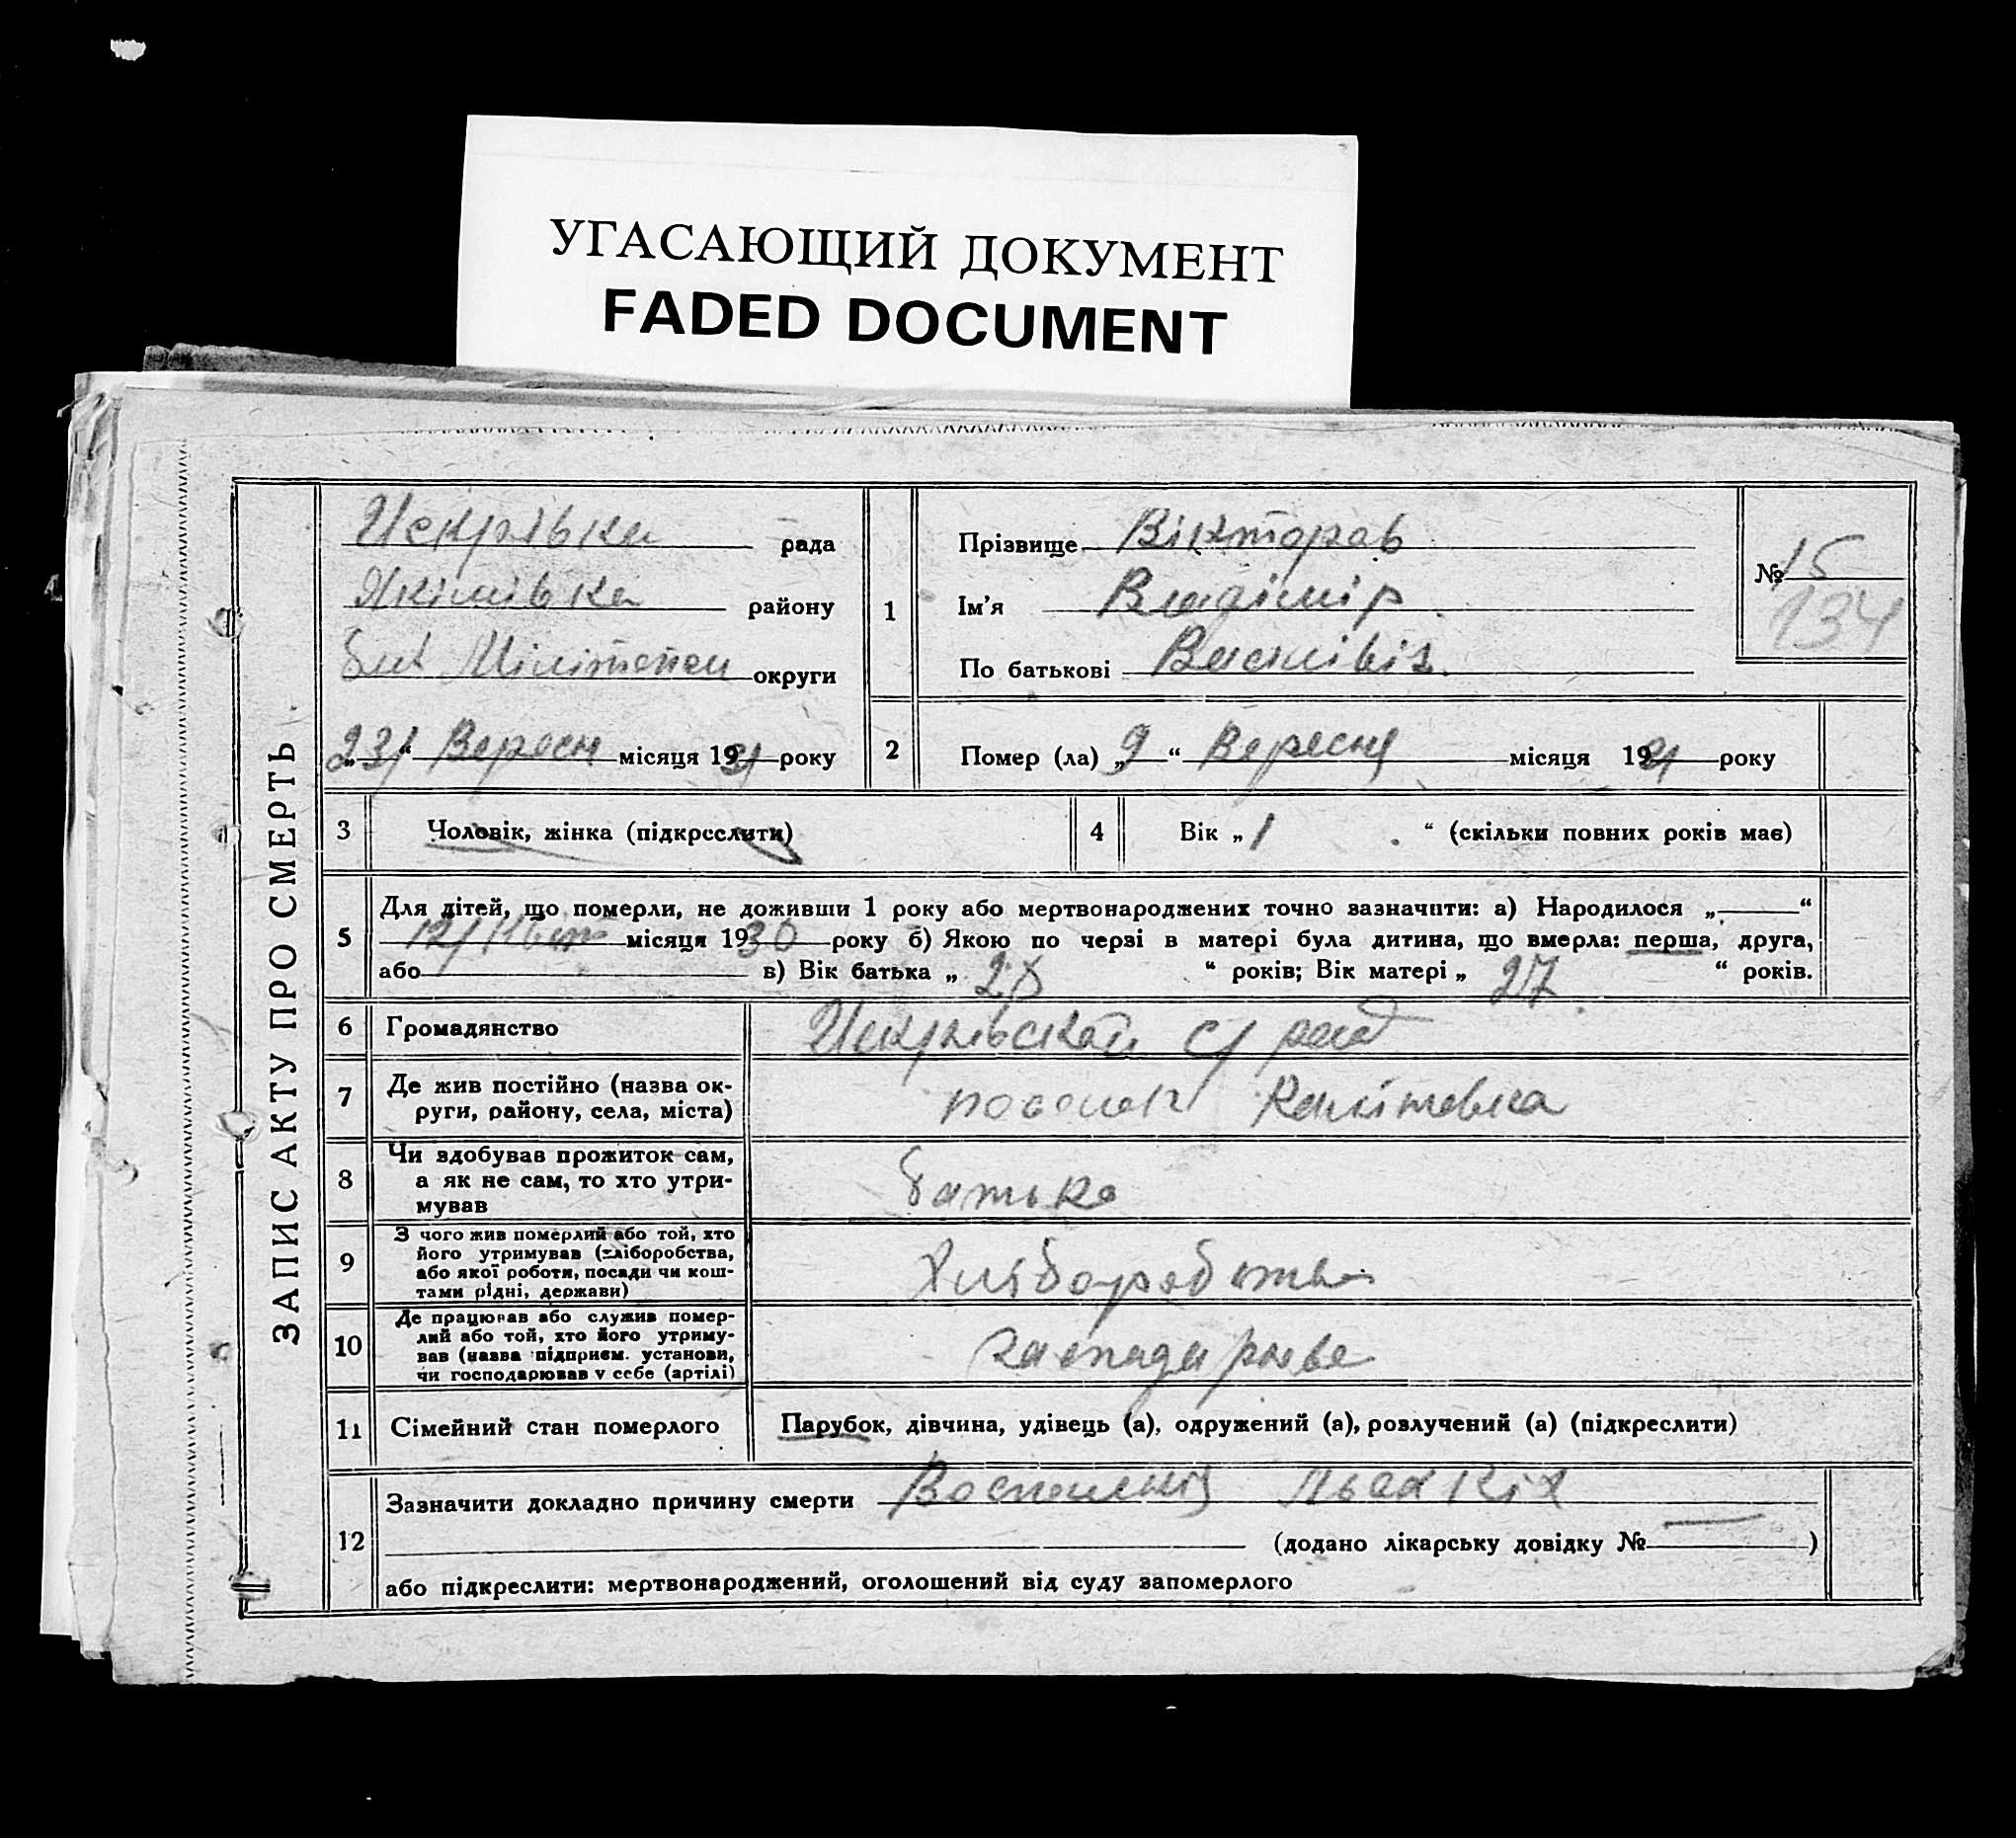 УГАСАЮЩИЙ ДОКУМЕНТ
FADED DOCUMENT
ЗАПИС АКТУ ПРО СМЕРТЬ
Искрівка рада
Якімівка району
бив Мілітопол округи
„23/“ Вересн місяця 1931 року
1
Прізвище Вікторов
Ім'я Владімір
По батькові Василівіч
№ 15
134
2 Помер (ла) „9“ Вересня місяця 1931 року
3 Чоловік, жінка (підкреслити)
4 Вік „1“ (скільки повних років має)
5 Для дітей, що померли, не доживши 1 року або мертвонароджених точно зазначити: а) Народилося „—“
12/ місяця 1930 року б) Якою по черзі в матері була дитина, що вмерла: перша, друга,
або в) Вік батька „28“ років; Вік матері „27“ років.
6 Громадянство Искрівской с/рад
7 Де жив постійно (назва ок-
руги, району, села, міста) Калітовка
8 Чи здобував прожиток сам,
а як не сам, то хто утри-
мував батько
9 З чого жив померлий або той, хто
його утримував (хліборобства,
або якої роботи, посади чи кош-
тами рідні, держави) Хліборобство
10 Де працював або служив помер-
лий або той, хто його утриму-
вав (назва підприєм. установи,
чи господарював у себе (артілі)
11 Сімейний стан померлого Парубок, дівчина, удівець (а), одружений (а), розлучений (а) (підкреслити)
12 Зазначити докладно причину смерти Воспаленія Льохкіх
(додано лікарську довідку № — )
або підкреслити: мертвонароджений, оголошений від суду запомерлого